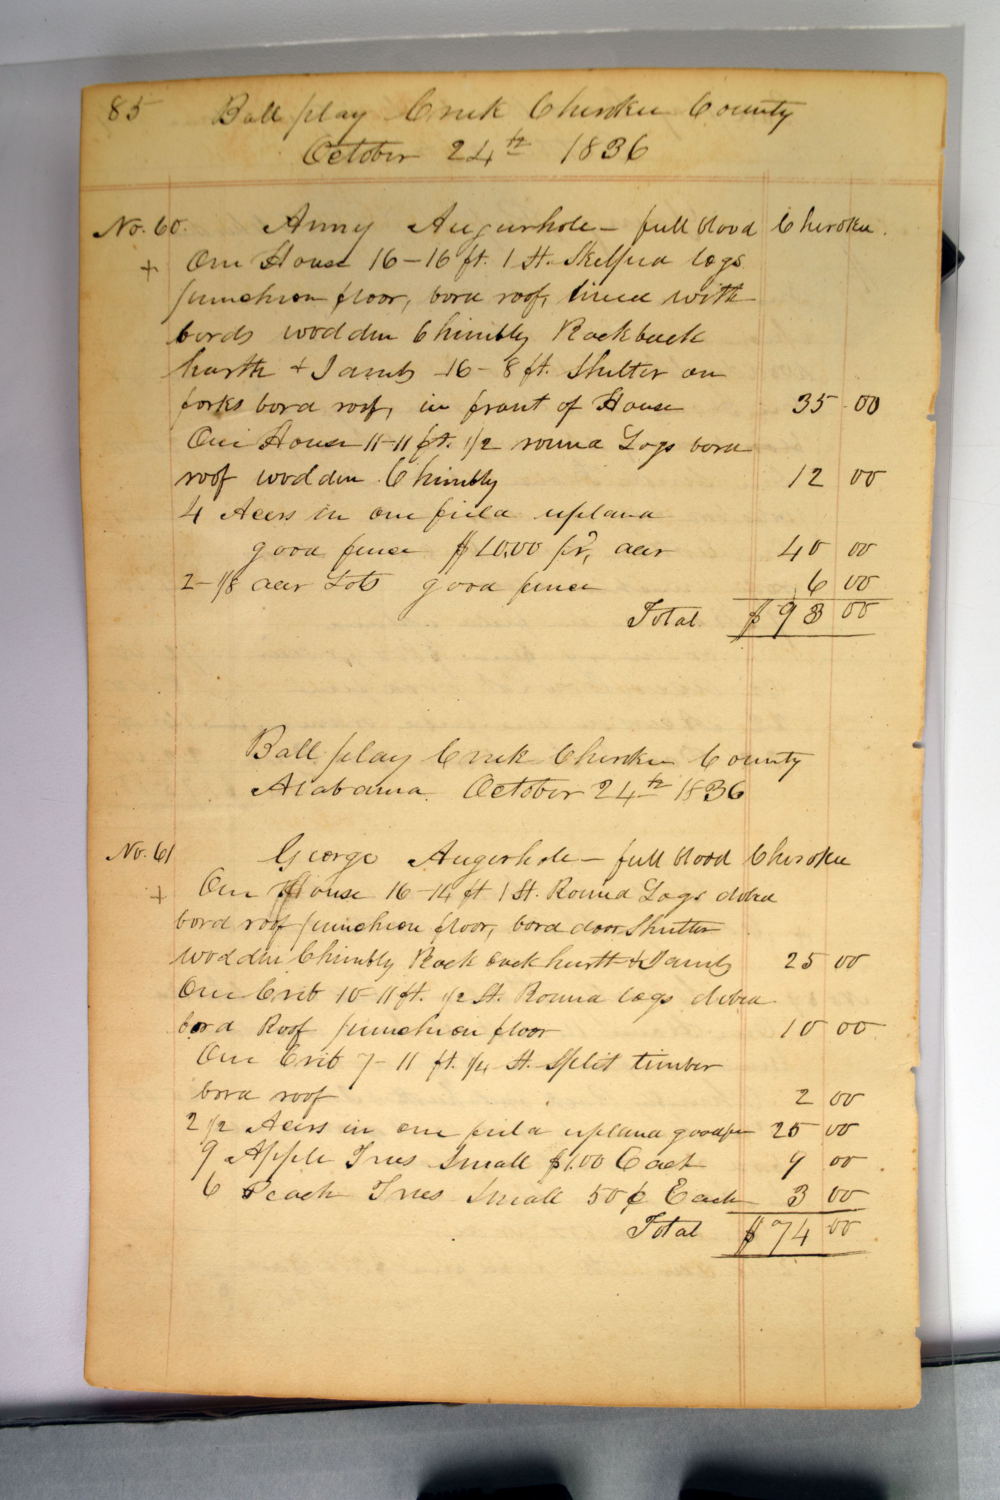 85 Ball play Creek Cherokee County
October 24th 1836
No. 60. Anny Augurhole - full blood Cherokee.
+ One House 16-16 ft. 1 St. Skelped logs
puncheon floor, bord roof, lined with
bords wodden Chimbly Rock back
harth + Jambs 16-8 ft. Shelter on
forks bord roof, in front of House 35 00
One House 11-11 ft. 1/2 round Logs bord
roof wodden Chimbly 12 00
4 Acers in one field upland
good fence $10.00 pr, acer 40 00
2-1/8 acer Lots good fence 6 00
Total $93 00
Ball play Creek Cherokee County
Alabama. October 24th 1836
No. 61 George Augerhole - full blood Cherokee
+ One House 16-14 ft 1 St. Round Logs dobed
bord roof puncheon floor, bord door Shutter
wodden Chimbly Rock back harth & Jambs 25 00
One Crib 10-11 ft. 1/2 St. Round logs dobed
bord Roof puncheon floor 10 00
One Crib 7-11 ft. 1/4 St. Split timber
bord roof 2 00
2 1/2 Acers in one field upland good fen 25 00
9 Apple Trees Small $1.00 Each 9 00
6 Peach Trees Small 50 ¢ Each 3 00
Total $74 00